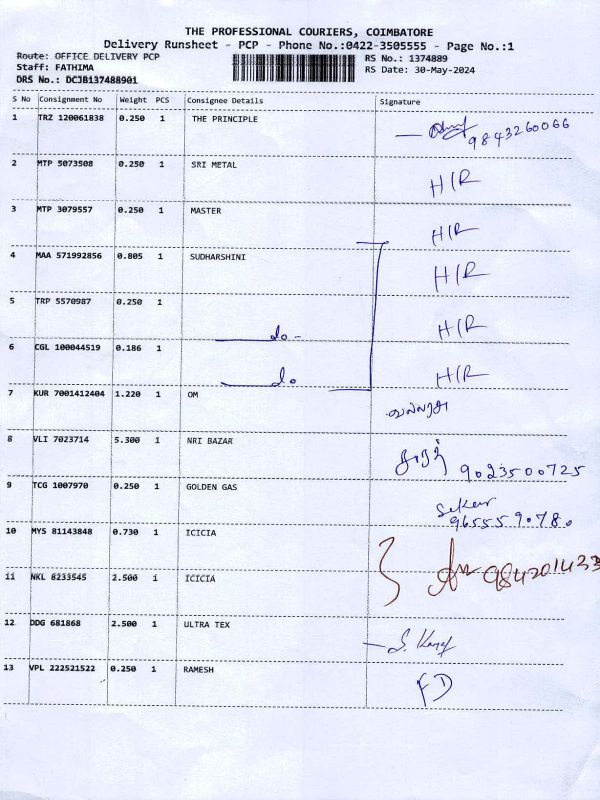 THE PROFESSIONAL COURIERS, COIMBATORE
Delivery Runsheet - PCP - Phone No.:0422-3505555 - Page No.:1
Route: OFFICE DELIVERY PCP
RS No.: 1374889
Staff: FATHIMA
RS Date: 30-May-2024
DRS No.: DCJB137488901
S No Consignment No Weight PCS Consignee Details Signature
1 TRZ 120061838 0.250 1 THE PRINCIPLE 9843260066
2 MTP 5073508 0.250 1 SRI METAL H/R
3 MTP 3079557 0.250 1 MASTER H/R
4 MAA 571992856 0.805 1 SUDHARSHINI H/R
5 TRP 5570987 0.250 1 do - H/R
6 CGL 100044519 0.186 1 do H/R
7 KUR 7001412404 1.220 1 OM
8 VLI 7023714 5.300 1 NRI BAZAR 9023500725
9 TCG 1007970 0.250 1 GOLDEN GAS Sekar
9655590780
10 MYS 81143848 0.730 1 ICICIA
11 NKL 8233545 2.500 1 ICICIA 984201433
12 DDG 681868 2.500 1 ULTRA TEX
13 VPL 222521522 0.250 1 RAMESH FD